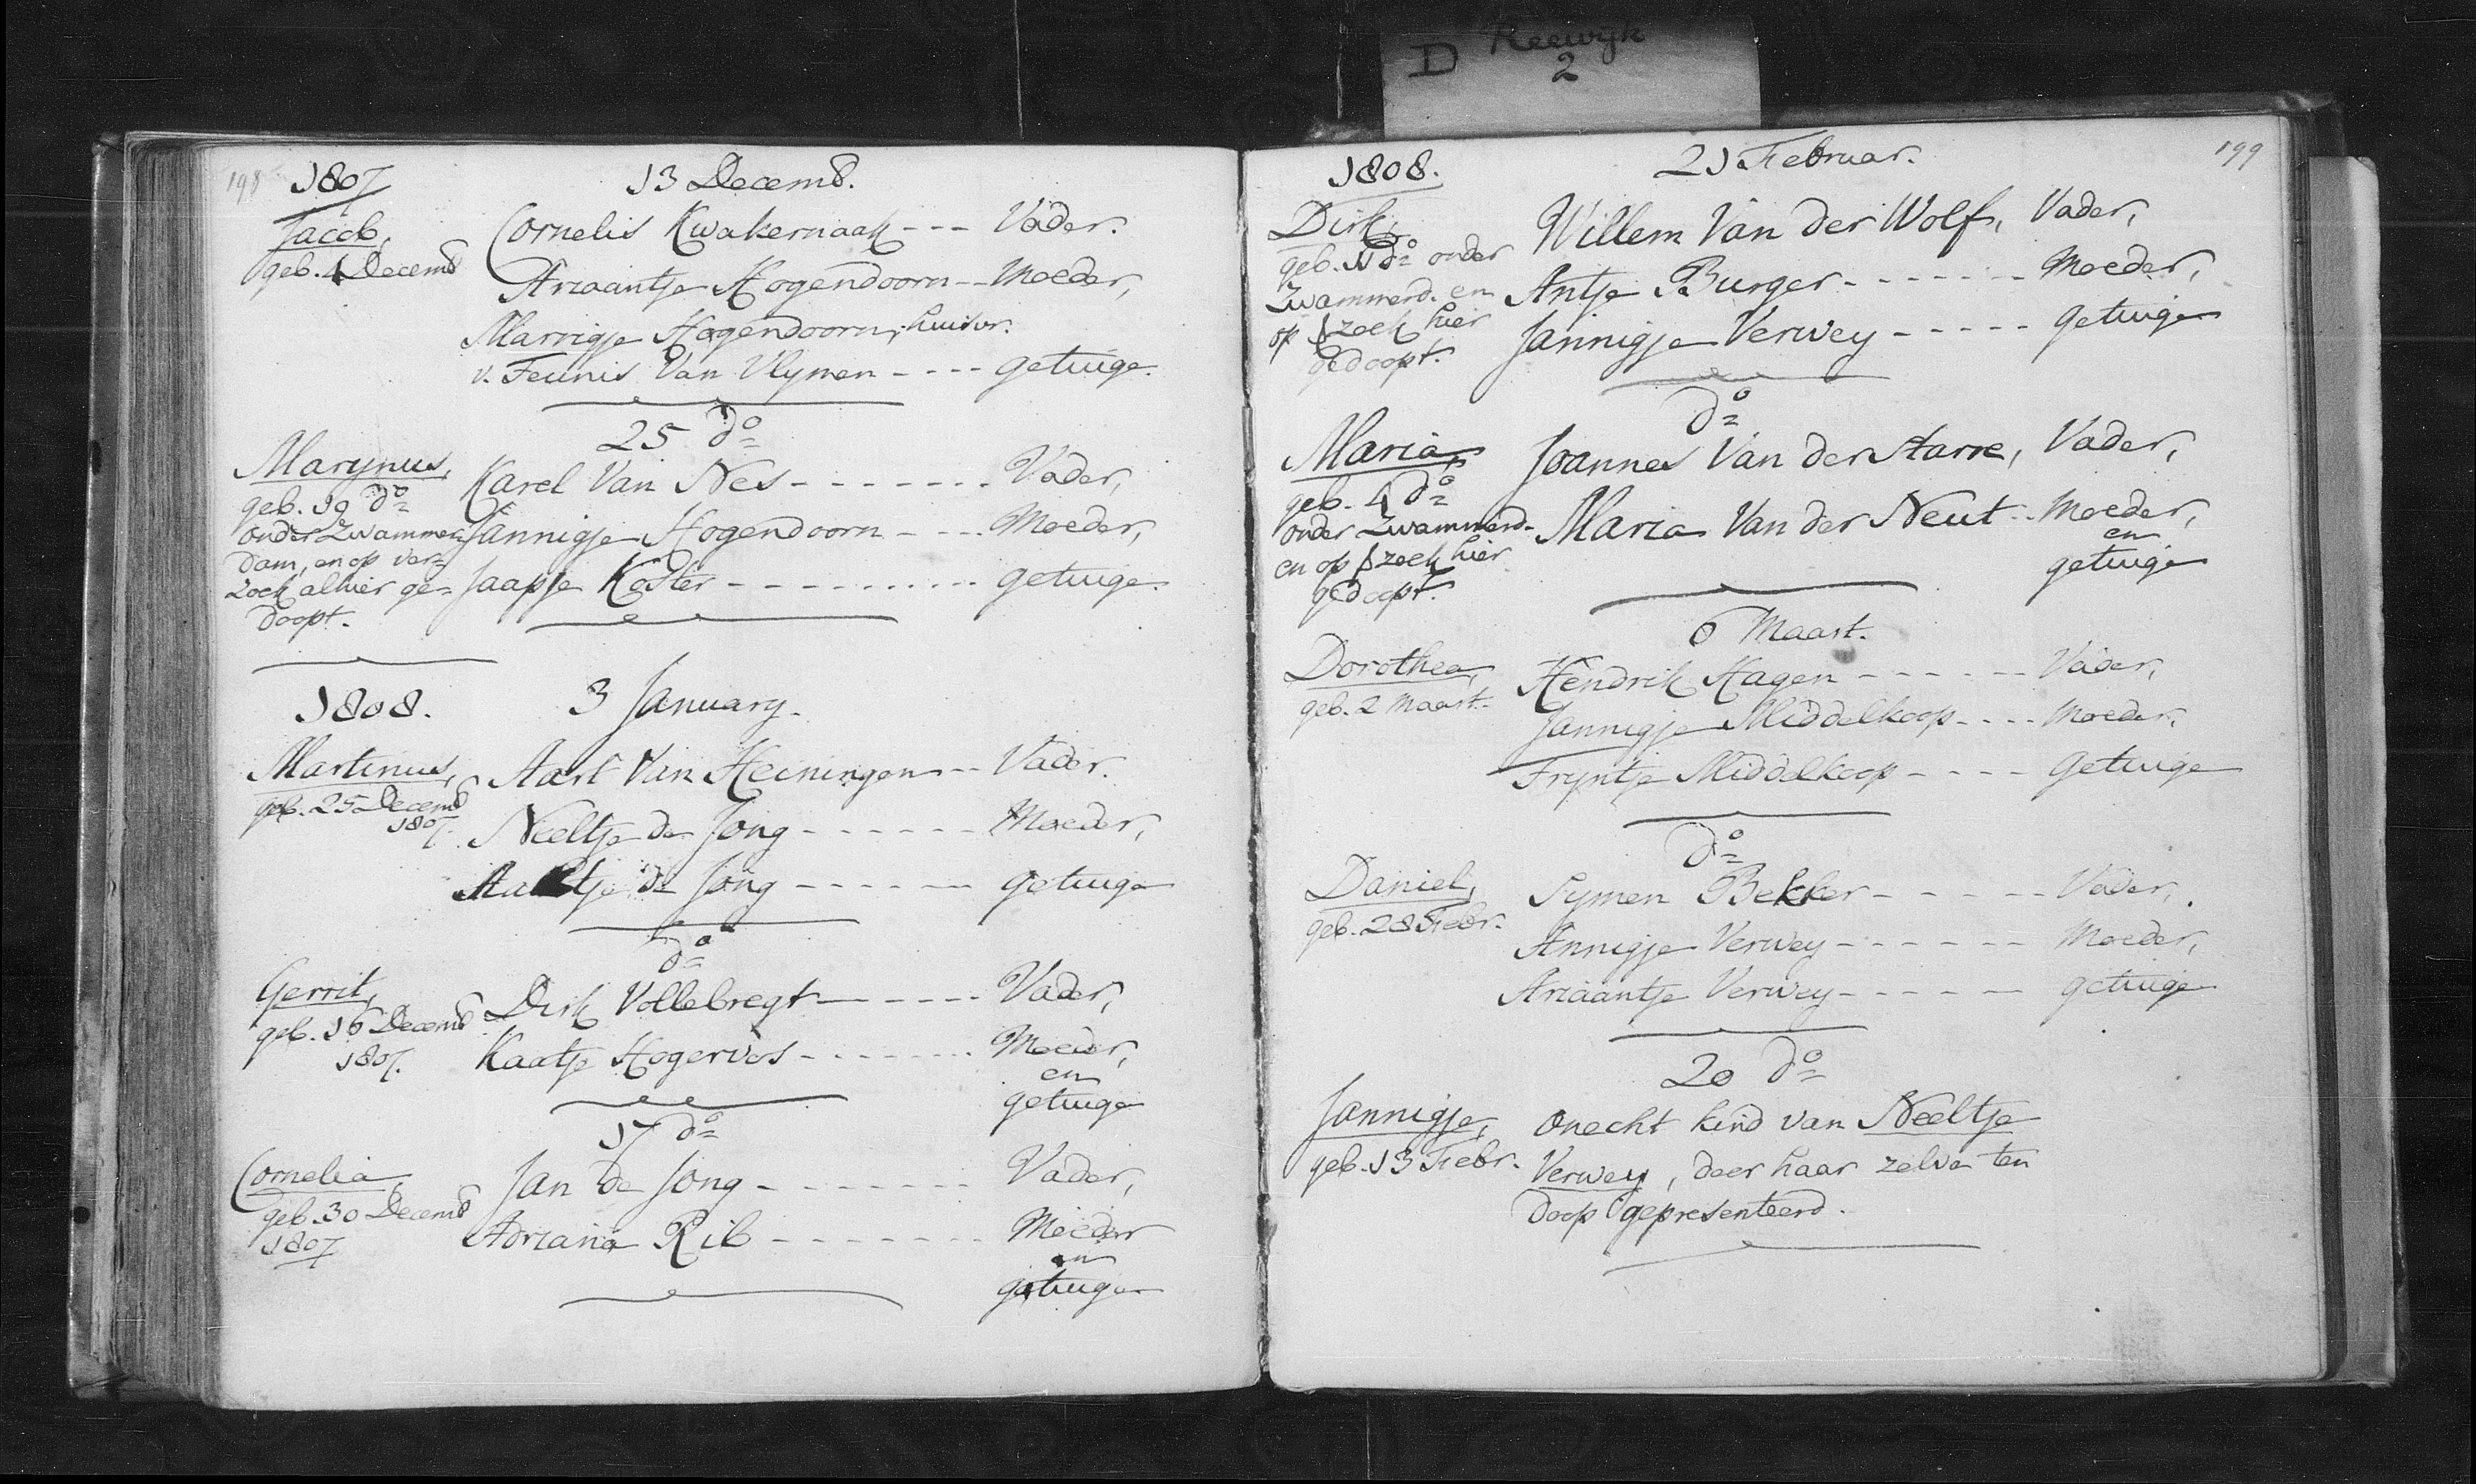 D Reewijk
2
198 1807 13 Decemb.
Jacob, Cornelis Kwakernaak --- Vader.
geb. 4 Decemb
Ariaantje Hogendoorn -- Moeder,
Marrigje Hogendoorn, huisvr.
v. Teunis Van Vlymen ---- getuige.
25 do
Marynus, Karel Van Nes ------- Vader,
geb. 19 do
onder Zwammer= Jannigje Hogendoorn ---- Moeder,
dam, en op ver=
zoek alhier ge= Jaapje Koster --------- getuige.
doopt.
1808. 3 January.
Martinus, Aart Van Heiningen -- Vader.
geb. 25 Decemb
1807. Neeltje de Jong ------ Moeder,
de Jong ------ getuige
do
Gerrit, Dirk Vollebregt ----- Vader,
geb. 16 Decemb
1807. Kaatje Hogervos ------- Moeder,
en
getuige
17 do
Cornelia, Jan de Jong ------- Vader,
geb. 30 Decemb
1807 Adriana Rib ------- Moeder
en
getuige
1808. 21 Februar. 199
Dirk, Willem Van der Wolf, Vader,
geb. 11 do onder
Zwammerd. en Antje Burger ------ Moeder,
op zoek hier Jannigje Verwey ----- getuige
gedoopt.
do
Maria, Joannes Van der Starre, Vader,
geb. 4 do
onder Zwammerd. Maria Van der Neut -- Moeder,
en op zoek hier en
gedoopt. getuige
6 Maart.
Dorothea, Hendrik Hagen ------ Vader,
geb. 2 Maart. Jannigje Middelkoop ---- Moeder,
Tryntje Middelkoop ---- getuige
do
Daniel, Symen Bekker ----- Vader,
geb. 28 Febr.
Annigje Verwey ------ Moeder,
Ariaantje Verwey ------ getuige
20 do
Jannigje, onecht kind van Neeltje
geb. 13 Febr. Verwey, door haar zelve ten
doop gepresenteerd.